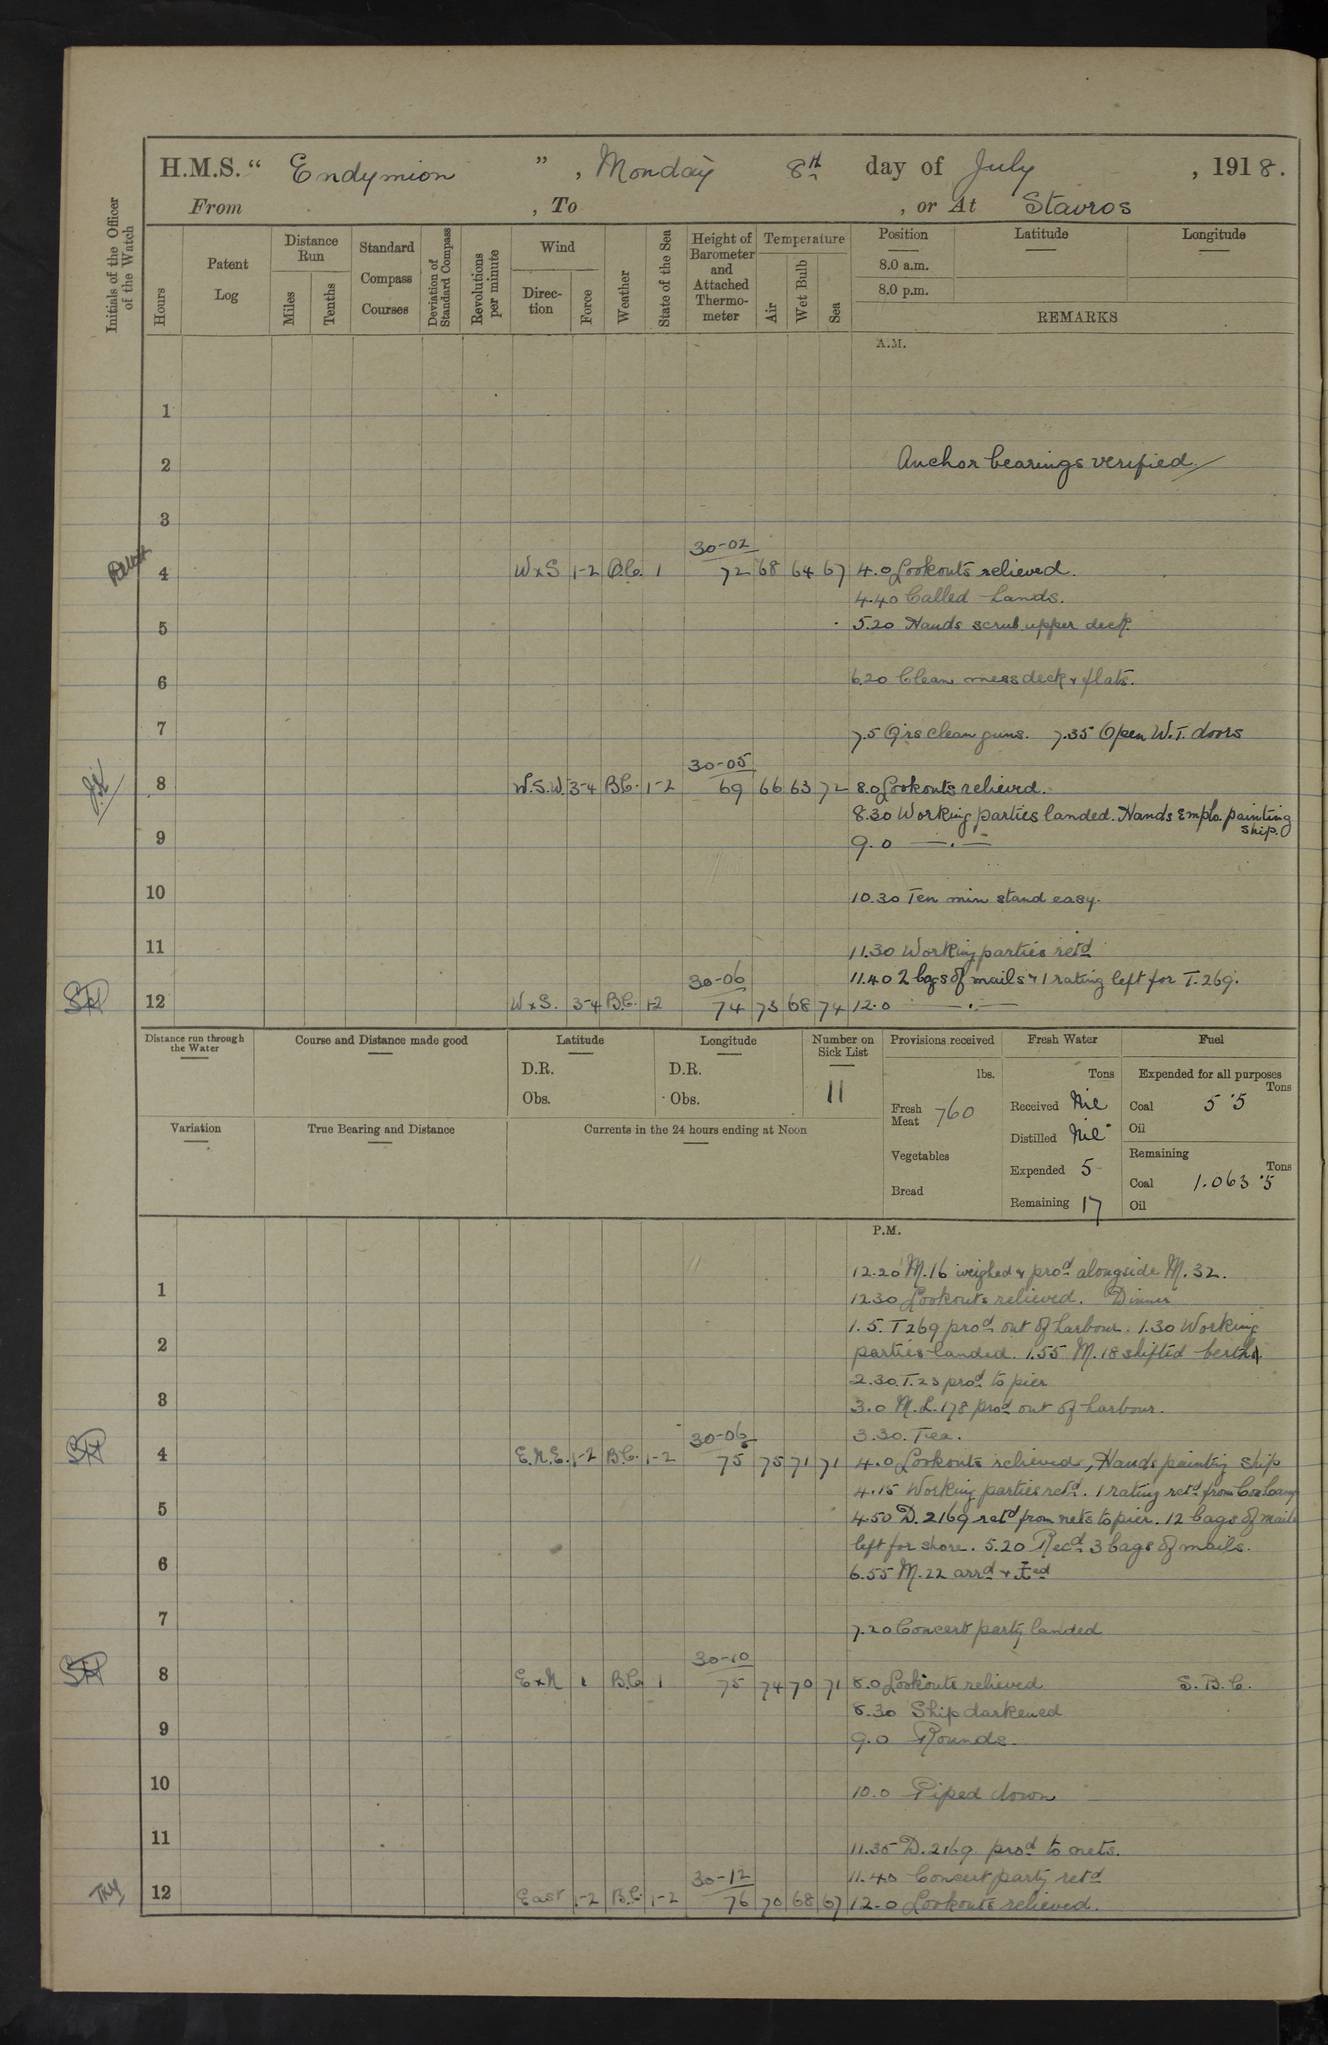 H.M.S. " Endymion ", Monday 8th day of July, 1918.
From , To , or At Stavros
Initials of the Officer of the Watch
Hours
Patent Log
Distance Run
Miles
Tenths
Standard Compass Courses
Deviation of Standard Compass
Revolutions per minute
Wind
Direction
Force
Weather
State of the Sea
Height of Barometer and Attached Thermometer
Temperature
Air
Wet Bulb
Sea
Position
Latitude
Longitude
8.0 a.m.
8.0 p.m.
REMARKS
A.M.
1
2 Anchor bearings verified.
3
30-02
4 WxS 1-2 B.C. 1 72 68 64 67 4.0 Lookouts relieved.
4.40 Called hands.
5 5.20 Hands scrub upper deck.
6 6.20 Clean mess deck & flats.
7 7.5 Qrs clean guns. 7.35 Open W.T. doors
30-05
8 W.S.W. 3-4 B.C. 1-2 69 66 63 72 8.0 Lookouts relieved.
8.30 Working parties landed. Hands Emplo. painting
ship.
9 9.0 —.—
10 10.30 Ten min stand easy.
11 11.30 Working parties retd
30-06 11.40 2 bgs of mails & 1 rating left for T.269.
12 WxS. 3-4 B.C. 1-2 74 73 68 74 12.0 —.—
Distance run through the Water
Course and Distance made good
Latitude
D.R.
Obs.
Longitude
D.R.
Obs.
Number on Sick List
11
Provisions received
lbs.
Fresh Meat 760
Vegetables
Bread
Fresh Water
Tons
Received Nil
Distilled Nil
Expended 5
Remaining 17
Fuel
Expended for all purposes
Tons
Coal 5.5
Oil
Remaining
Tons
Coal 1.063.5
Oil
Variation
True Bearing and Distance
Currents in the 24 hours ending at Noon
P.M.
12.20 M.16 weighed & procd alongside M.32.
1 12.30 Lookouts relieved. Dinner
1.5. T269 procd out of harbour. 1.30 Working
2 parties landed. 1.55 M.18 shifted berth.
2.30. T.23 procd to pier
3 3.0 M.L.178 procd out of harbour.
30-06 3.30. Tea.
4 E.N.E. 1-2 B.C. 1-2 75 75 71 71 4.0 Lookouts relieved, Hands painting ship
4.15 Working parties retd. 1 rating retd from
5 4.50 D.2169 retd from nets to pier. 12 bags of mails
left for shore. 5.20 Recd 3 bags of mails.
6 6.55 M.22 arrd &
7 7.20 Concert party landed
30-10
8 ExN 1 B.C. 1 75 74 70 71 8.0 Lookouts relieved S.B.C.
8.30 Ship darkened
9 9.0 Rounds.
10 10.0 Piped down
11 11.35 D.2169 procd to nets.
30-12 11.40 Concert party retd
12 East 1-2 B.C. 1-2 76 70 68 67 12.0 Lookouts relieved.